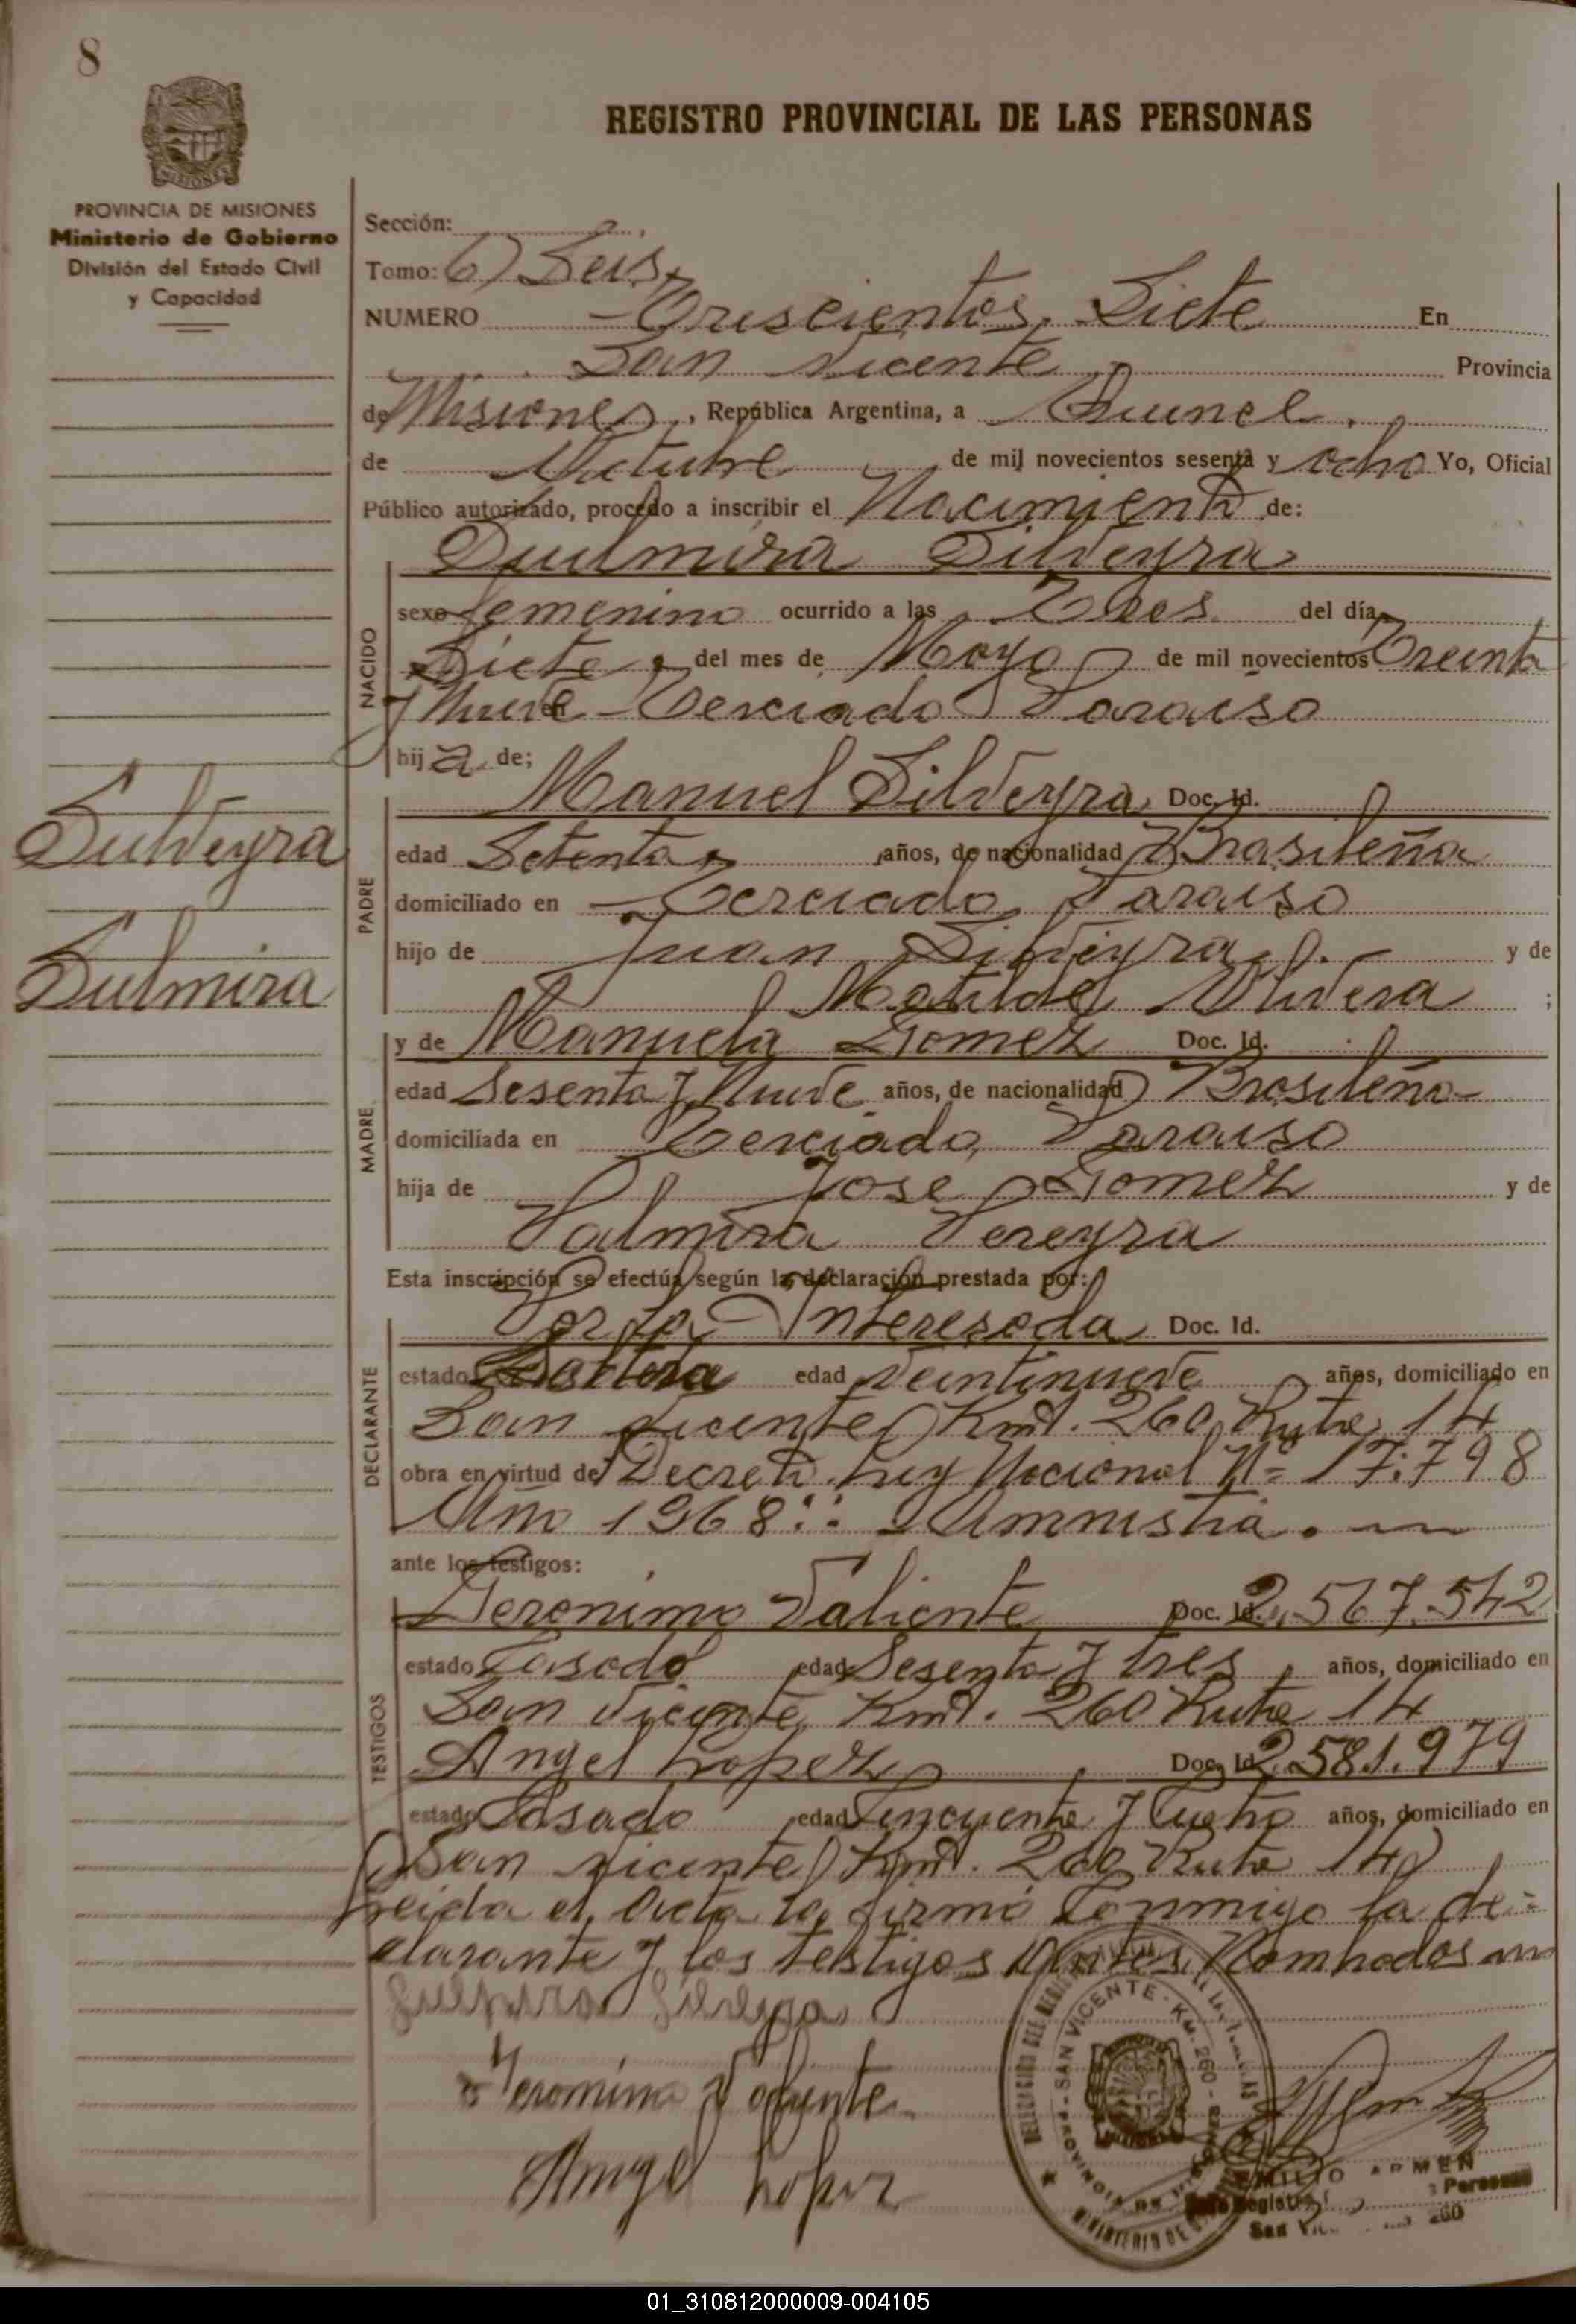 8
REGISTRO PROVINCIAL DE LAS PERSONAS
MISIONES
PROVINCIA DE MISIONES
Ministerio de Gobierno
División del Estado Civil
y Capacidad
Sección:
Tomo: 6) Seis.
NUMERO - Trescientos, Siete En
San Vicente Provincia
de Misiones, República Argentina, a Quince
de Octubre de mil novecientos sesenta y ocho Yo, Oficial
Público autorizado, procedo a inscribir el Nacimiento de:
Silveyra
NACIDO
sexo femenino ocurrido a las Tres del día
Siete del mes de Mayo de mil novecientos Treinta
y Nueve en Terciado Paraiso
hija de;
Manuel Silveyra Doc. Id.
PADRE
edad Setenta años, de nacionalidad Brasileña
domiciliado en Terciado Paraiso
hijo de Juan Silveyra y de
Matilde Olivera ;
Suilveyra
Sulmira
MADRE
y de Manuela Gomez Doc. Id.
edad Sesenta y Nueve años, de nacionalidad Brasileña
domiciliada en Terciado Paraiso
hija de Jose Gomez y de
Palmira Pereyra
Esta inscripción se efectúa según la declaración prestada por:
DECLARANTE
Por la Interesada Doc. Id.
estado Soltera edad Veintinueve años, domiciliado en
San Vicente Kmt. 260 Ruta 14
obra en virtud de Decreto Ley Nacional Nº 17.798
Año 1968:: Amnistia.
ante los testigos:
TESTIGOS
Geronimo Valiente Doc. Id. 2.567.542
estado Casado edad Sesenta y tres años, domiciliado en
San Vicente Kmt. 260 Ruta 14
Angel Lopez Doc. Id. 2.581.979
estado Casado edad Cincuenta y Cuatro años, domiciliado en
San Vicente Kmt. 260 Ruta 14
Leida el Acta la firmó Conmigo la de-
clarante y los testigos Antes Nombrados
Geronimo Valiente
Angel Lopez
SAN VICENTE - KM. 260 -
PROVINCIA DE MISIONES
EMILIO ARMEN
San Vic 260
01_310812000009-004105